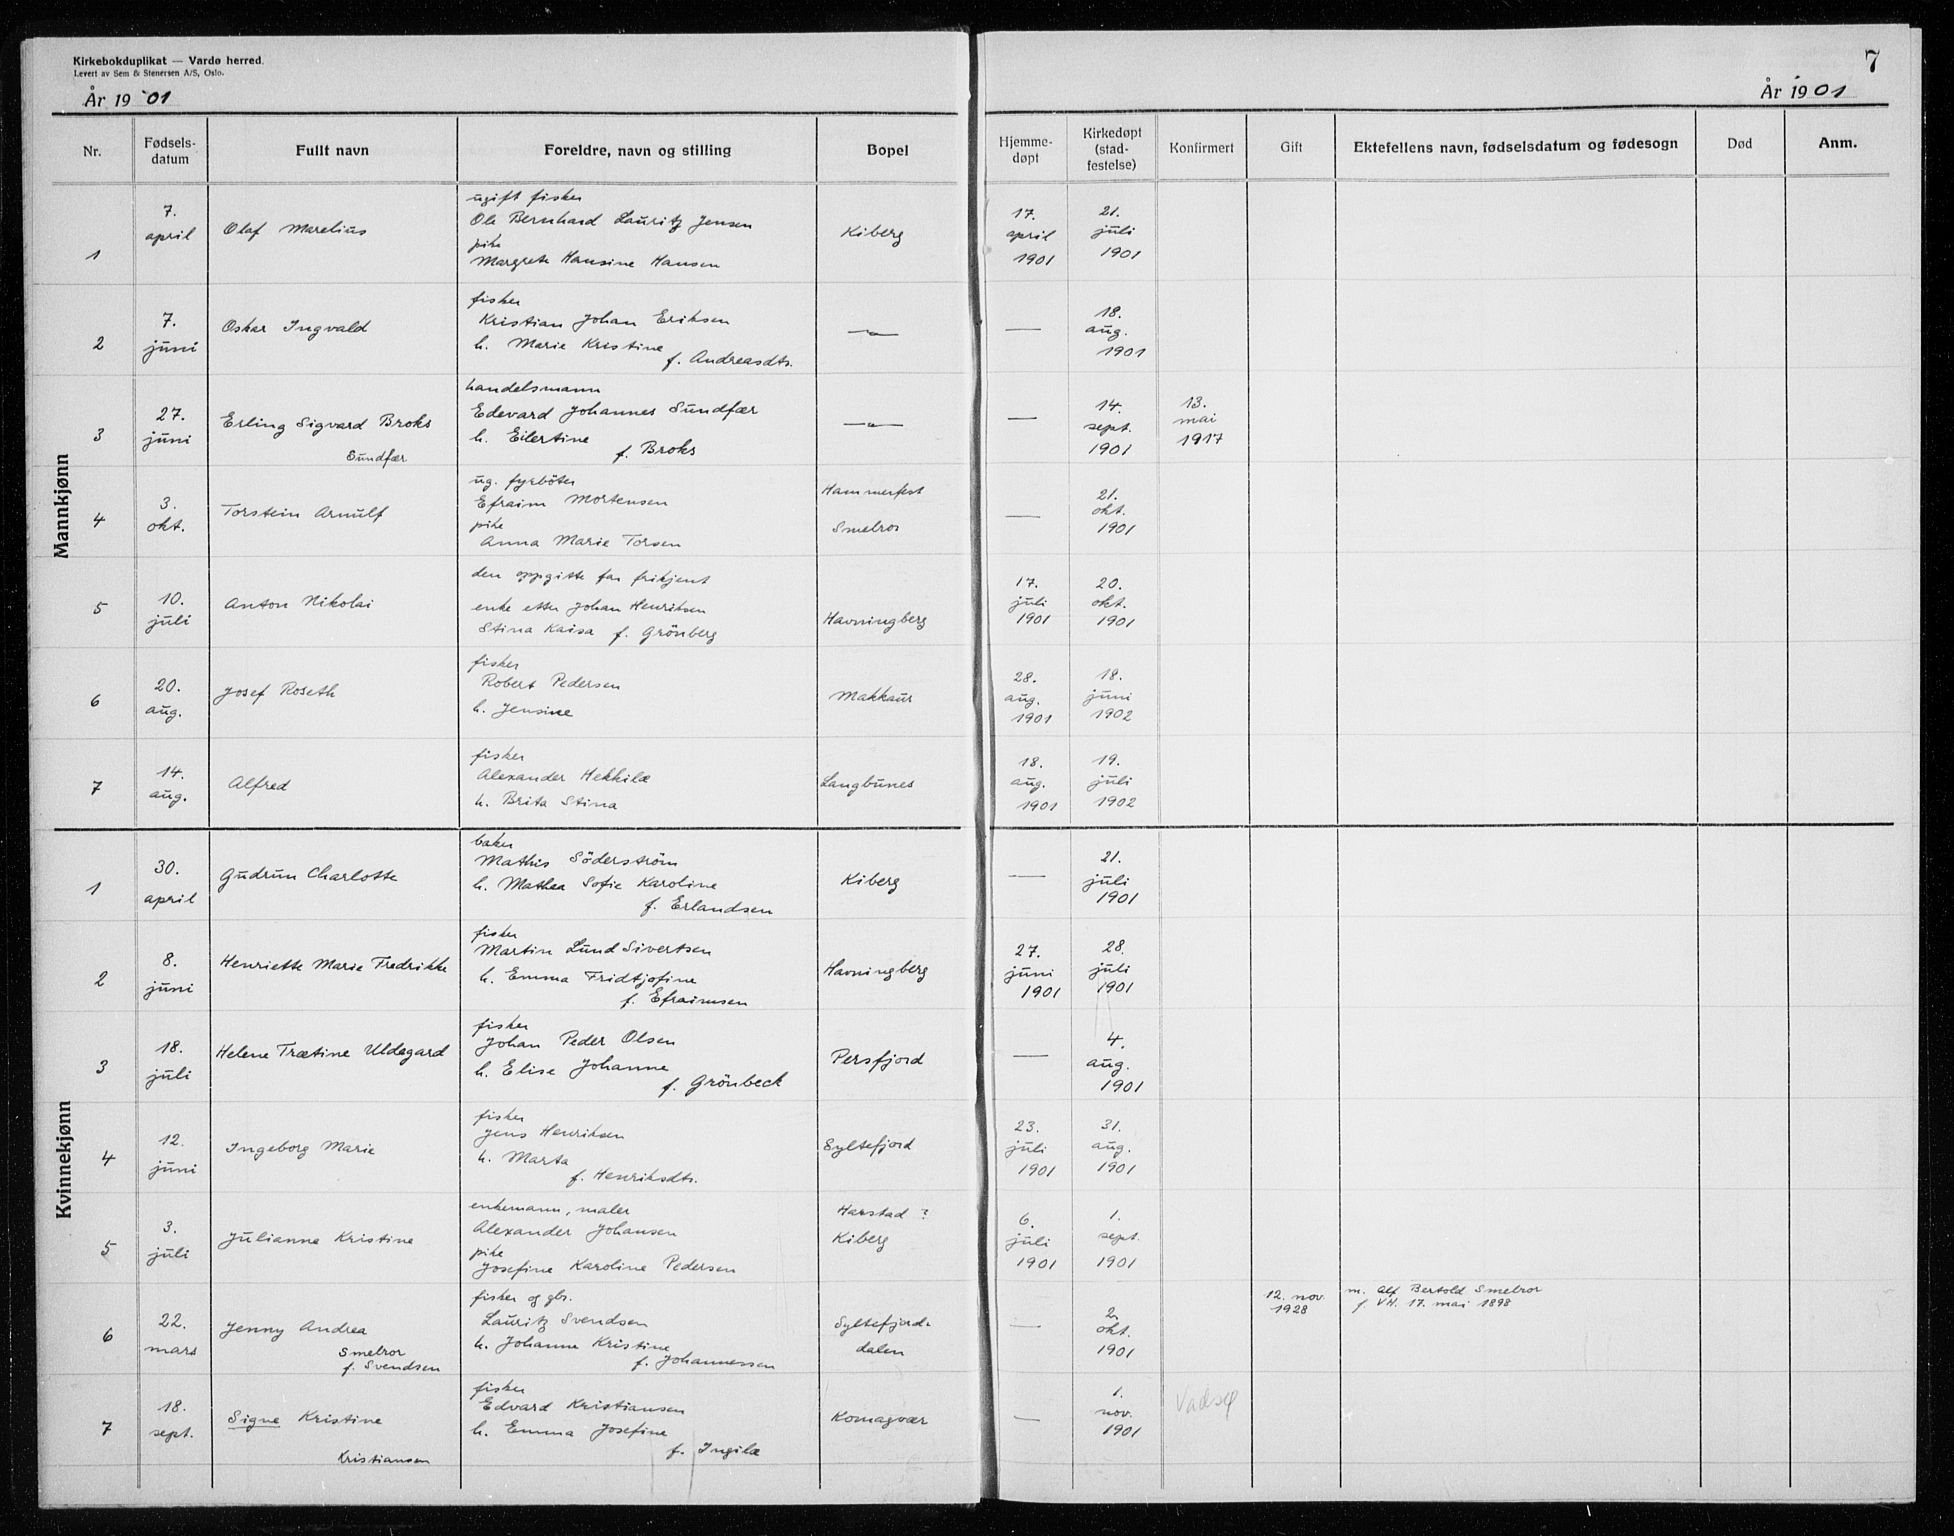 Kirkebokduplikat — Vardø herred.
Levert av Sem & Stenersen A/S, Oslo.
År 1901
7
År 1901
Nr. Fødselsdatum Fullt navn Foreldre, navn og stilling Bopel Hjemmedøpt Kirkedøpt (stadfestelse) Konfirmert Gift Ektefellens navn, fødselsdatum og fødesogn Død Anm.
Mannkjønn
ugift fisker
1 7. april Olaf Marelius Ole Bernhard Lauritz Jensen Kiberg 17. april 1901 21. juli 1901
pike
Margrete Hansine Hansen
fisker
2 7. juni Oskar Ingvald Kristian Johan Eriksen —"— — 18. aug. 1901
h. Marie Kristine
f. Andreasdtr.
handelsmann
3 27. juni Erling Sigvard Broks Edevard Johannes Sundfær —"— — 14. sept. 1901 13. mai 1917
Sundfær h. Eilertine
f. Broks
ug. fyrböter
4 3. okt. Torstein Arnulf Efraim Mortensen Hammerfest — 21. okt. 1901
pike
Anna Marie Torsen Smelror
den oppgitte far frikjent
5 10. juli Anton Nikolai enke etter Johan Henriksen Havningberg 17. juli 1901 20. okt. 1901
Stina Kaisa f. Grönberg
fisker
6 20. aug. Josef Roseth Robert Pedersen Makkaur 28. aug. 1901 18. juni 1902
h. Jensine
fisker
7 14. aug. Alfred Alexander Hekkilæ Langbunes 18. aug. 1901 19. juli 1902
h. Brita Stina
Kvinnekjønn
baker
1 30. april Gudrun Charlotte Mathis Söderström Kiberg — 21. juli 1901
h. Mathea Sofie Karoline
f. Erlandsen
fisker
2 8. juni Henriette Marie Fredrikke Martin Lund Sivertsen Havningberg 27. juni 1901 28. juli 1901
h. Emma Fridtjofine
f. Efraimsen
fisker
3 18. juli Helene Trætine Uldegard Johan Peder Olsen Persfjord — 4. aug. 1901
h. Elise Johanne
f. Grönbeck
fisker
4 12. juni Ingeborg Marie Jens Henriksen Syltefjord 23. juli 1901 31. aug. 1901
h. Marta
f. Henriksdtr.
enkemann, maler Harstad ?
5 3. juli Julianne Kristine Alexander Johansen Kiberg 6. juli 1901 1. sept. 1901
pike
Josefine Karoline Pedersen
fisker og gbr.
6 22. mars Jenny Andrea Lauritz Svendsen Syltefjord- — 2. okt. 1901 12. nov. 1928 m. Alf Bertold Smelror
f. VH. 17. mai 1898
Smelror h. Johanne Kristine dalen
f. Svendsen f. Johannessen
fisker
7 18. sept. Signe Kristine Edvard Kristiansen Komagvær — 1. nov. 1901 Vadsø
h. Emma Josefine
Kristiansen f. Ingilæ